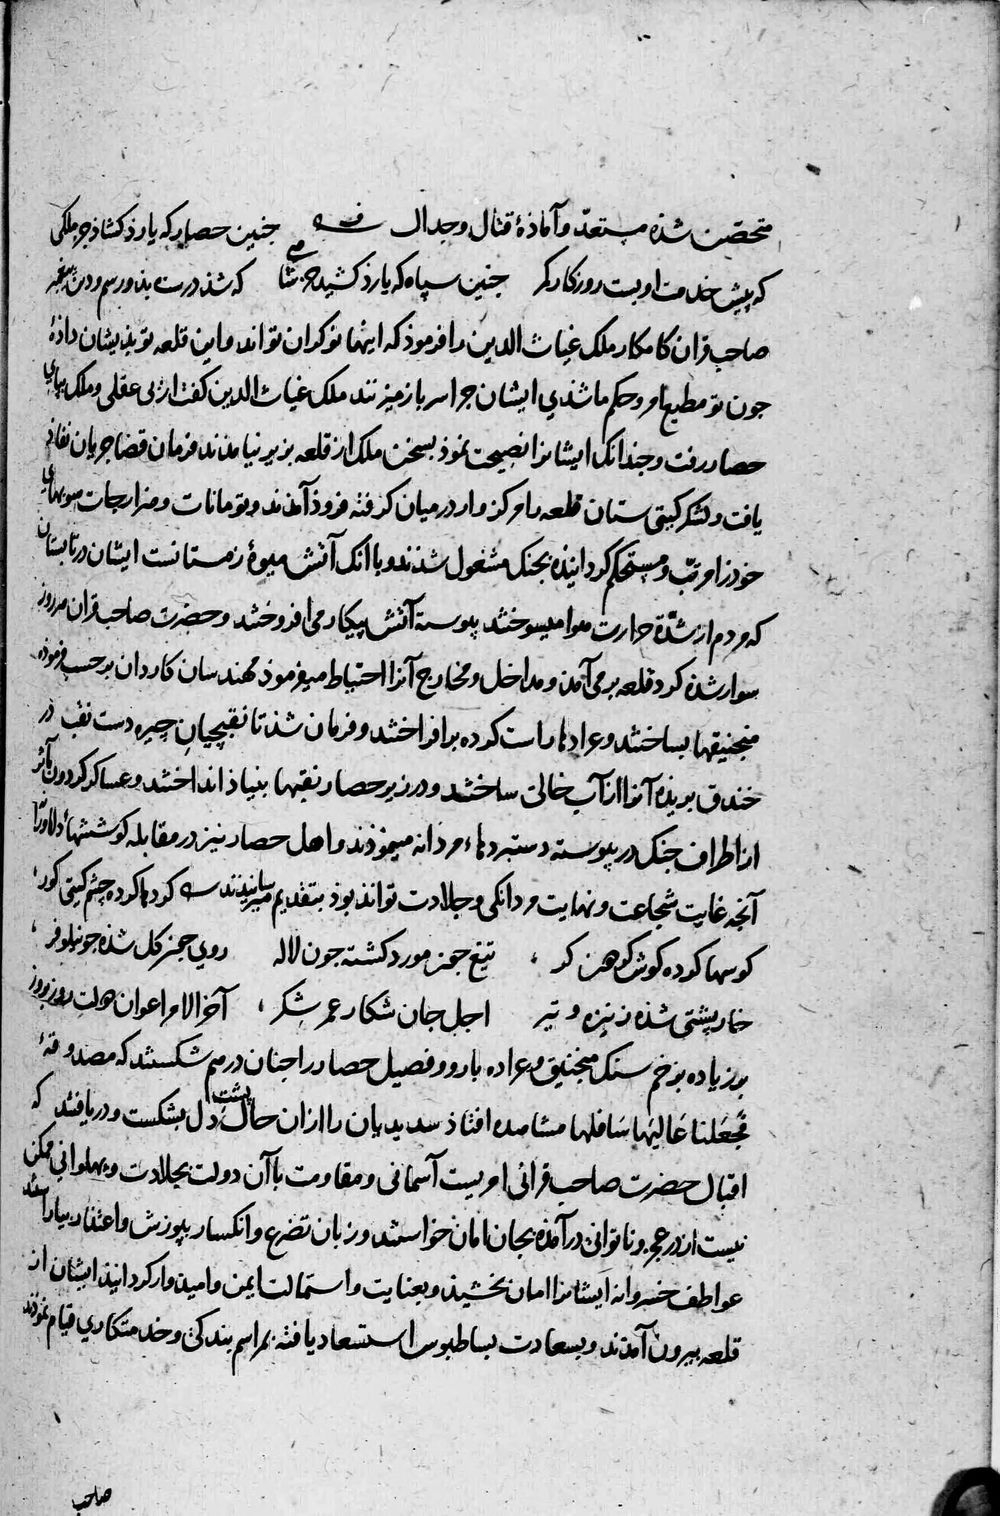 متحصّن شده مستعدّ و آماذهٔ قتال و جدال جنین حصار که یارذ کشاذ جز ملکی
که پیش خدمت او بست روزکار کمر جنین سپاه که یارذ کشیذ جز شاهی که شذ درست بذو رسم و دین
صاحب قران کامکار ملک غیاث الدین را فرموذ که اینها نوکران تواند و این قلعه تو بذیشان داذهٔ
جون تو مطیع امر و حکم ما شذی ایشان جرا سر باز میزنند ملک غیاث الدین کفت از بی عقلی و ملک بپای
حصار رفت و جندانک ایشانرا نصیحت نموذ بسخن ملک از قلعه بزیر نیامذند فرمان قضا جریان نفاذ
یافت و لشکر کیتی ستان قلعه را مرکزوار در میان کرفته فروذ آمذند و تومانات و هزارجات
خوذ را مرتّب و مستحکم کردانیذه بجنک مشغول شذند و با انک آتش میوهٔ زمستانست ایشان در تابستان
که مردم از شدّة حرارت هوا میسوختند پیوسته آتش پیکار می افروختند و حضرت صاحب قران هر روز
سوار شذه کرد قلعه بر می آمذ و مداخل و مخارج آنرا احتیاط میفرموذ مهندسان کاردان بر حسب فرموذه
منجنیقها بساختند و عرادها راست کرده برافراختند و فرمان شذ تا نقبچیان چیره دست نقب در
خندق بریذه آنرا از آب خالی ساختند و در زیر حصار نقبها بنیاذ انداختند و عساکر کردون مآثر
از اطراف جنک در پیوسته دستبردهاء مردانه مینموذند و اهل حصار نیز در مقابله کوششهاء دلاورانه
آنچه غایت شجاعت و نهایت مردانکی و جلادت تواند بوذ بتقدیم میرسانیذند کردها کرده چشم کیتی کور
کوسها کرده کوش کردون کر تیغ جون مورد کشته جون لاله روی جون کل شذه جو نیلوفر
خارپشتی شذه ز نیزه و تیر اجل جان شکار عمر شکر آخر الامر اعوان دولت روز بروز
بر زیاده بزخم سنک منجنیق و عراده بارو و فصیل حصار را جنان درهم شکستند که مصدوقهٔ
فجعلنا عالیها سافلها مشاهده افتاذ سدیدیان را ازان حال پشت دل بشکست و دریافتند که
اقبال حضرت صاحب قرانی امریست آسمانی و مقاومت با آن دولت بجلادت و پهلوانی ممکن
نیست از در عجز و ناتوانی درآمذه بجان امان خواستند و زبان تضرع و انکسار بپوزش و اعتذار بیاراستند
عواطف خسروانه ایشانرا امان بخشیذ و بعنایت و استمالت ایمن و امیدوار کردانیذ ایشان از
قلعه بیرون آمذند و بسعادت بساطبوس استسعاد یافته بمراسم بندکی و خدمتکاری قیام نموذند
صاحب